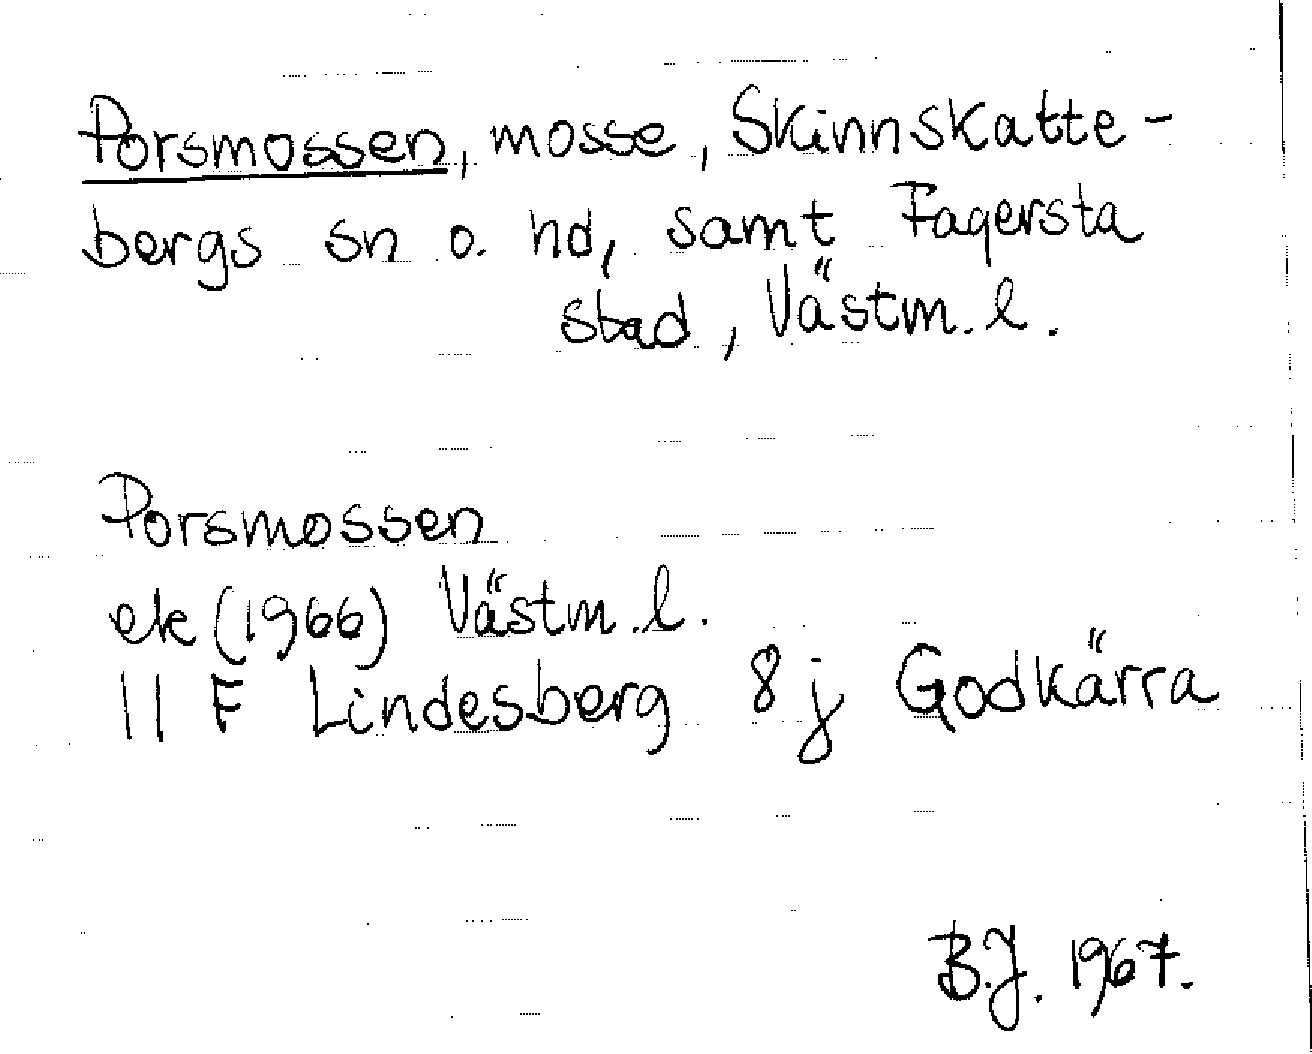 Porsmossen, mosse, Skinnskatte-
bergs sn o. hd, samt Fagersta
stad, Västm. l.
Porsmossen
ek (1966) Västm. l.
11 F Lindesberg 8 j Godkärra
B.J. 1967.